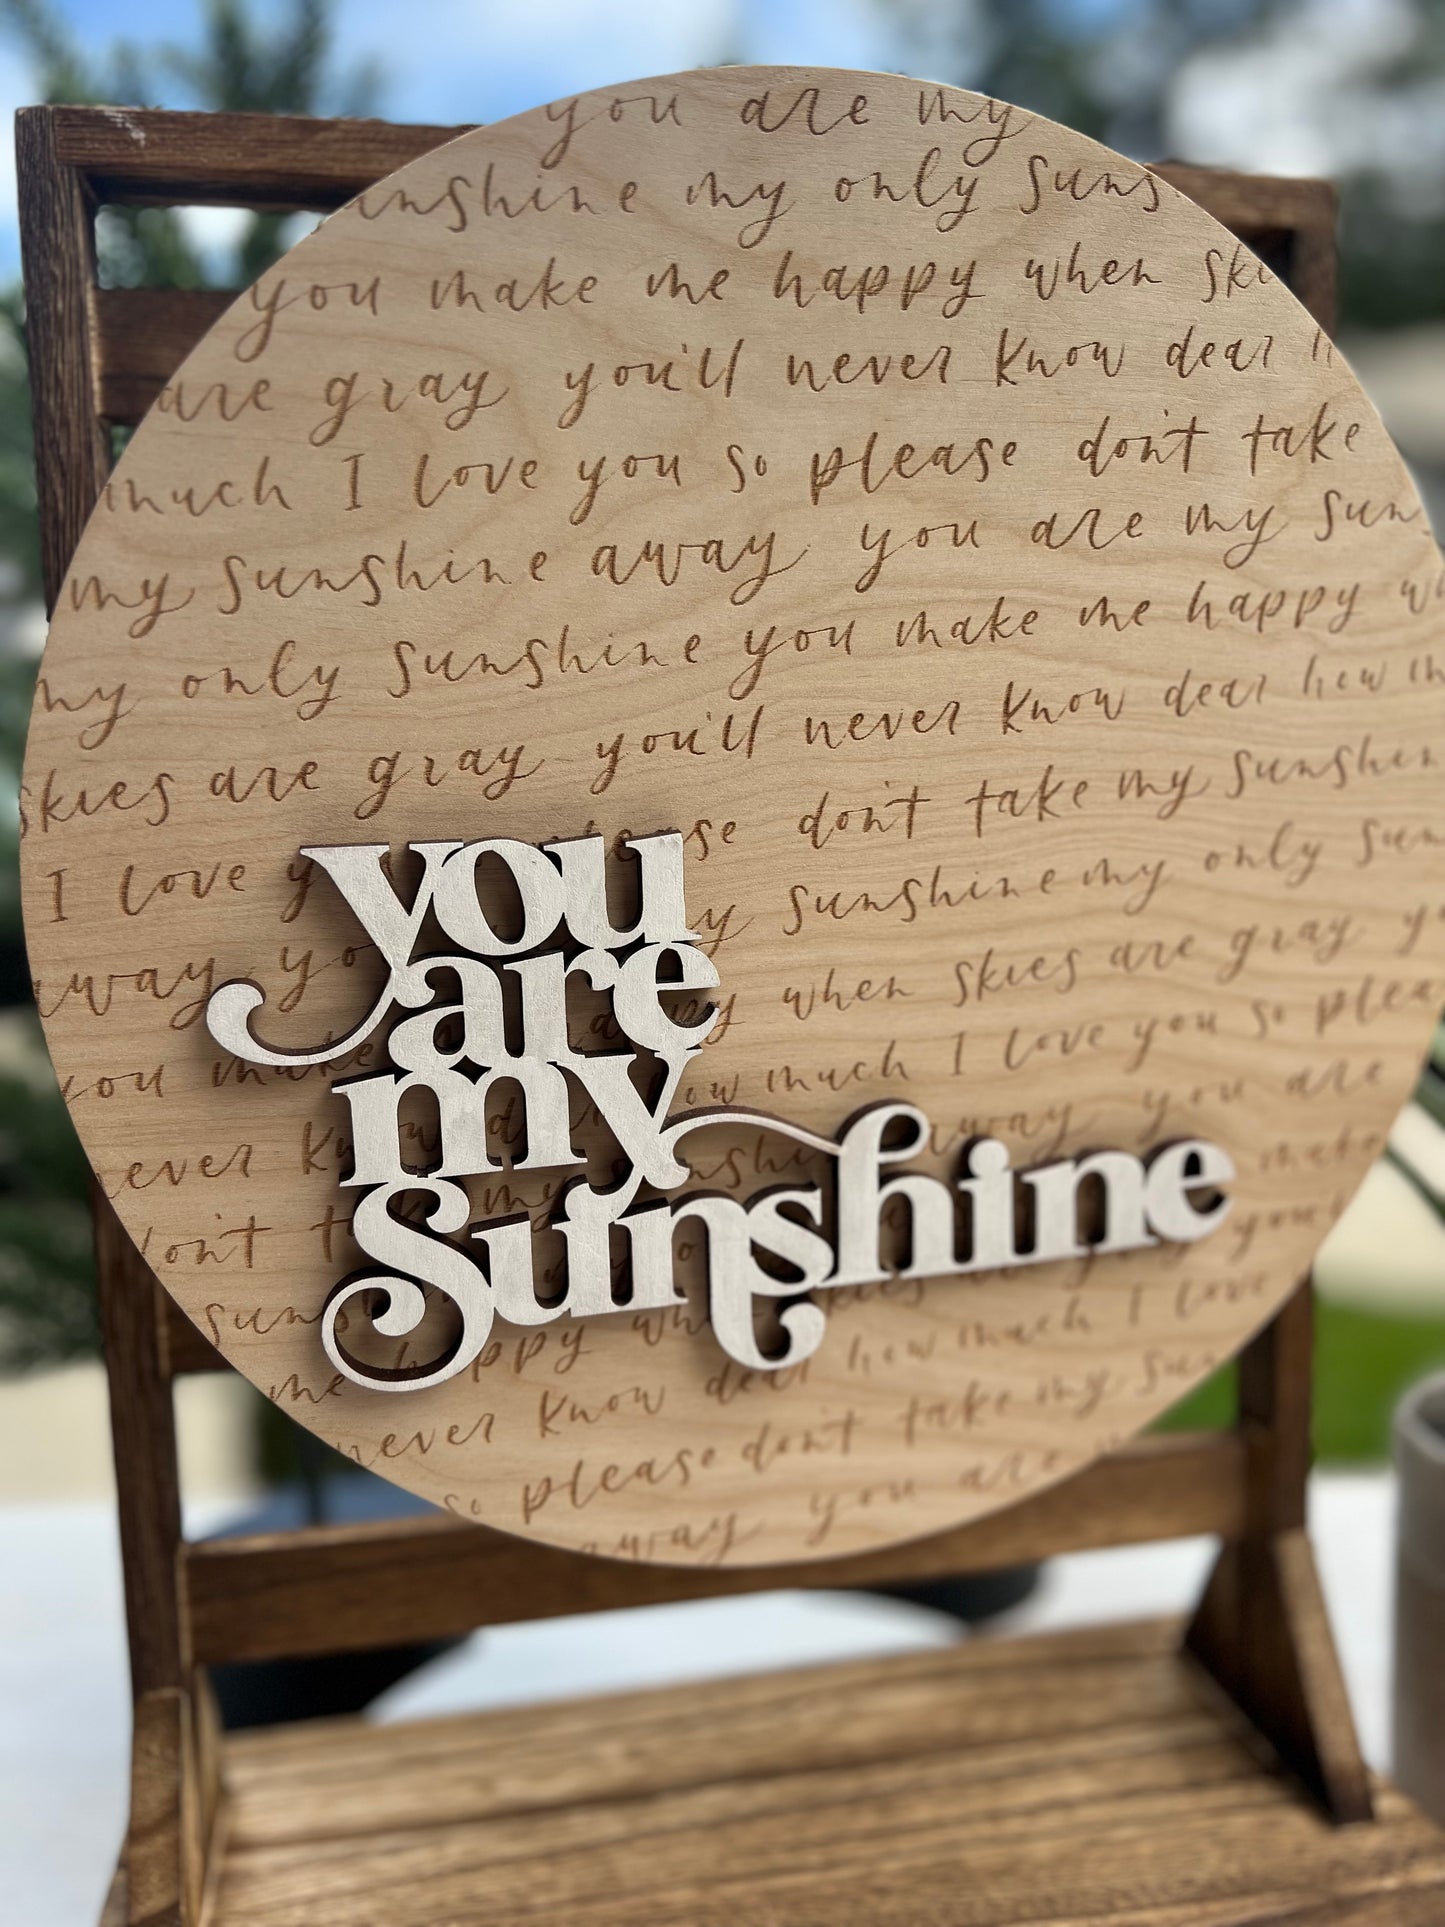 you are my
sunshine my only suns
you make me happy when ski
are gray you'll never know dear h
much I love you so please don't take
my sunshine away you are my sun
my only sunshine you make me happy wh
skies are gray you'll never know dear how m
I love y please don't take my sunshin
away yo my sunshine my only sun
you make happy when skies are gray y
never know dear how much I love you so plea
don't take my sunshine away you are
sunshine make
me happy when skies gray you'
never know dear how much I love
so please don't take my sun
away you are
you
are
my
Sunshine